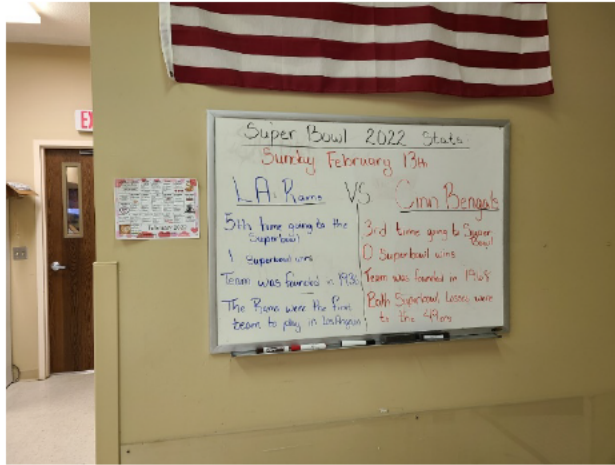 EX
Super Bowl 2022 Stats
Sunday February 13th
LA. Rams VS Cinn Bengals
5th time going to the
Superbowl
1 Superbowl wins
Team was founded in 1936
The Rams were the first
team to play in Los Angeles
3rd time going to Super
Bowl
0 Superbowl wins
Team was founded in 1968
Both Superbowl Losses were
to the 49ers
February 2022